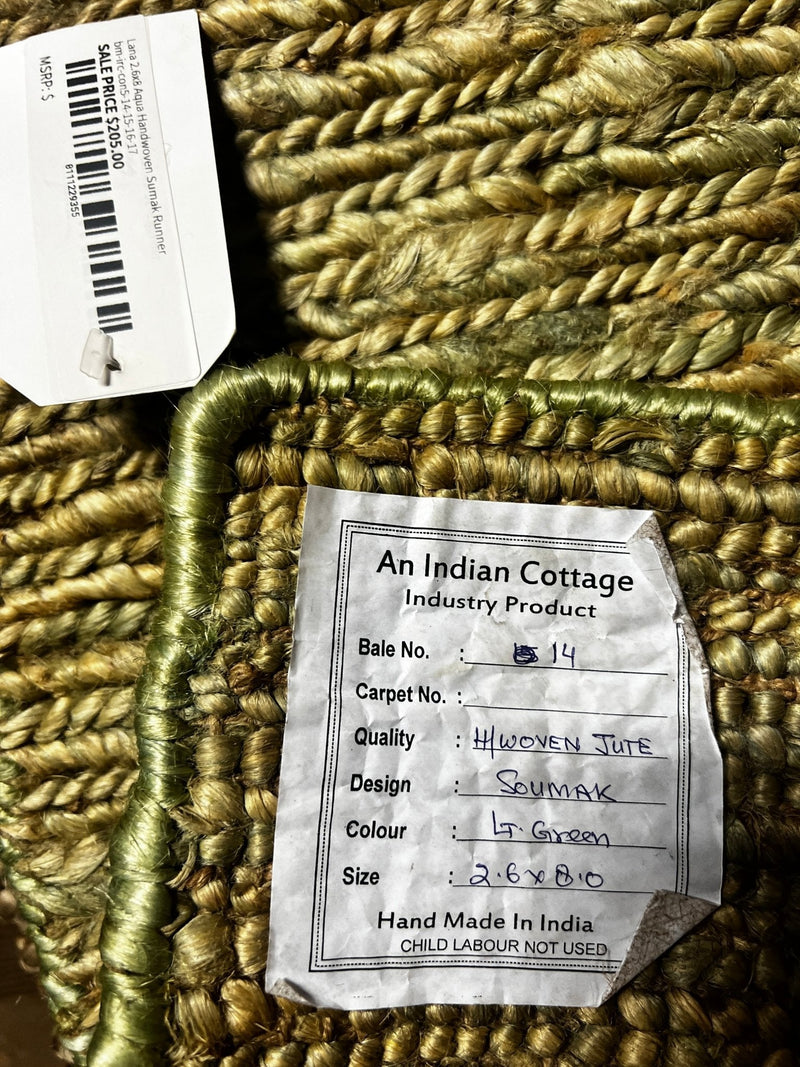 Lana 2.6x8 Aqua Handwoven Sumak Runner
bm-irc-con5-14-15-16-17
SALE PRICE $205.00
0111229355
MSRP: $
An Indian Cottage
Industry Product
Bale No. : 14
Carpet No. :
Quality : H/WOVEN JUTE
Design : SOUMAK
Colour : LT. Green
Size : 2.6 x 8.0
Hand Made In India
CHILD LABOUR NOT USED